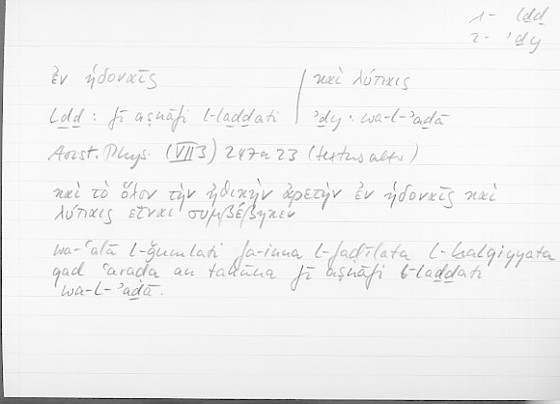 1- lḏḏ
2- ʾḏy
ἐν ἡδοναῖς | καὶ λύπαις
Lḏḏ : fī aṣnāfi l-laḏḏati | ʾḏy : wa-l-ʾaḏā
Arist. Phys. (VII 3) 247a 23 (textus alter)
καὶ τὸ ὅλον τὴν ἠθικὴν ἀρετὴν ἐν ἡδοναῖς καὶ
λύπαις εἶναι συμβέβηκεν
wa-ʿalā l-ǧumlati fa-inna l-faḍīlata l-ḫalqiyyata
qad ʿaraḍa an takūna fī aṣnāfi l-laḏḏati
wa-l-ʾaḏā.